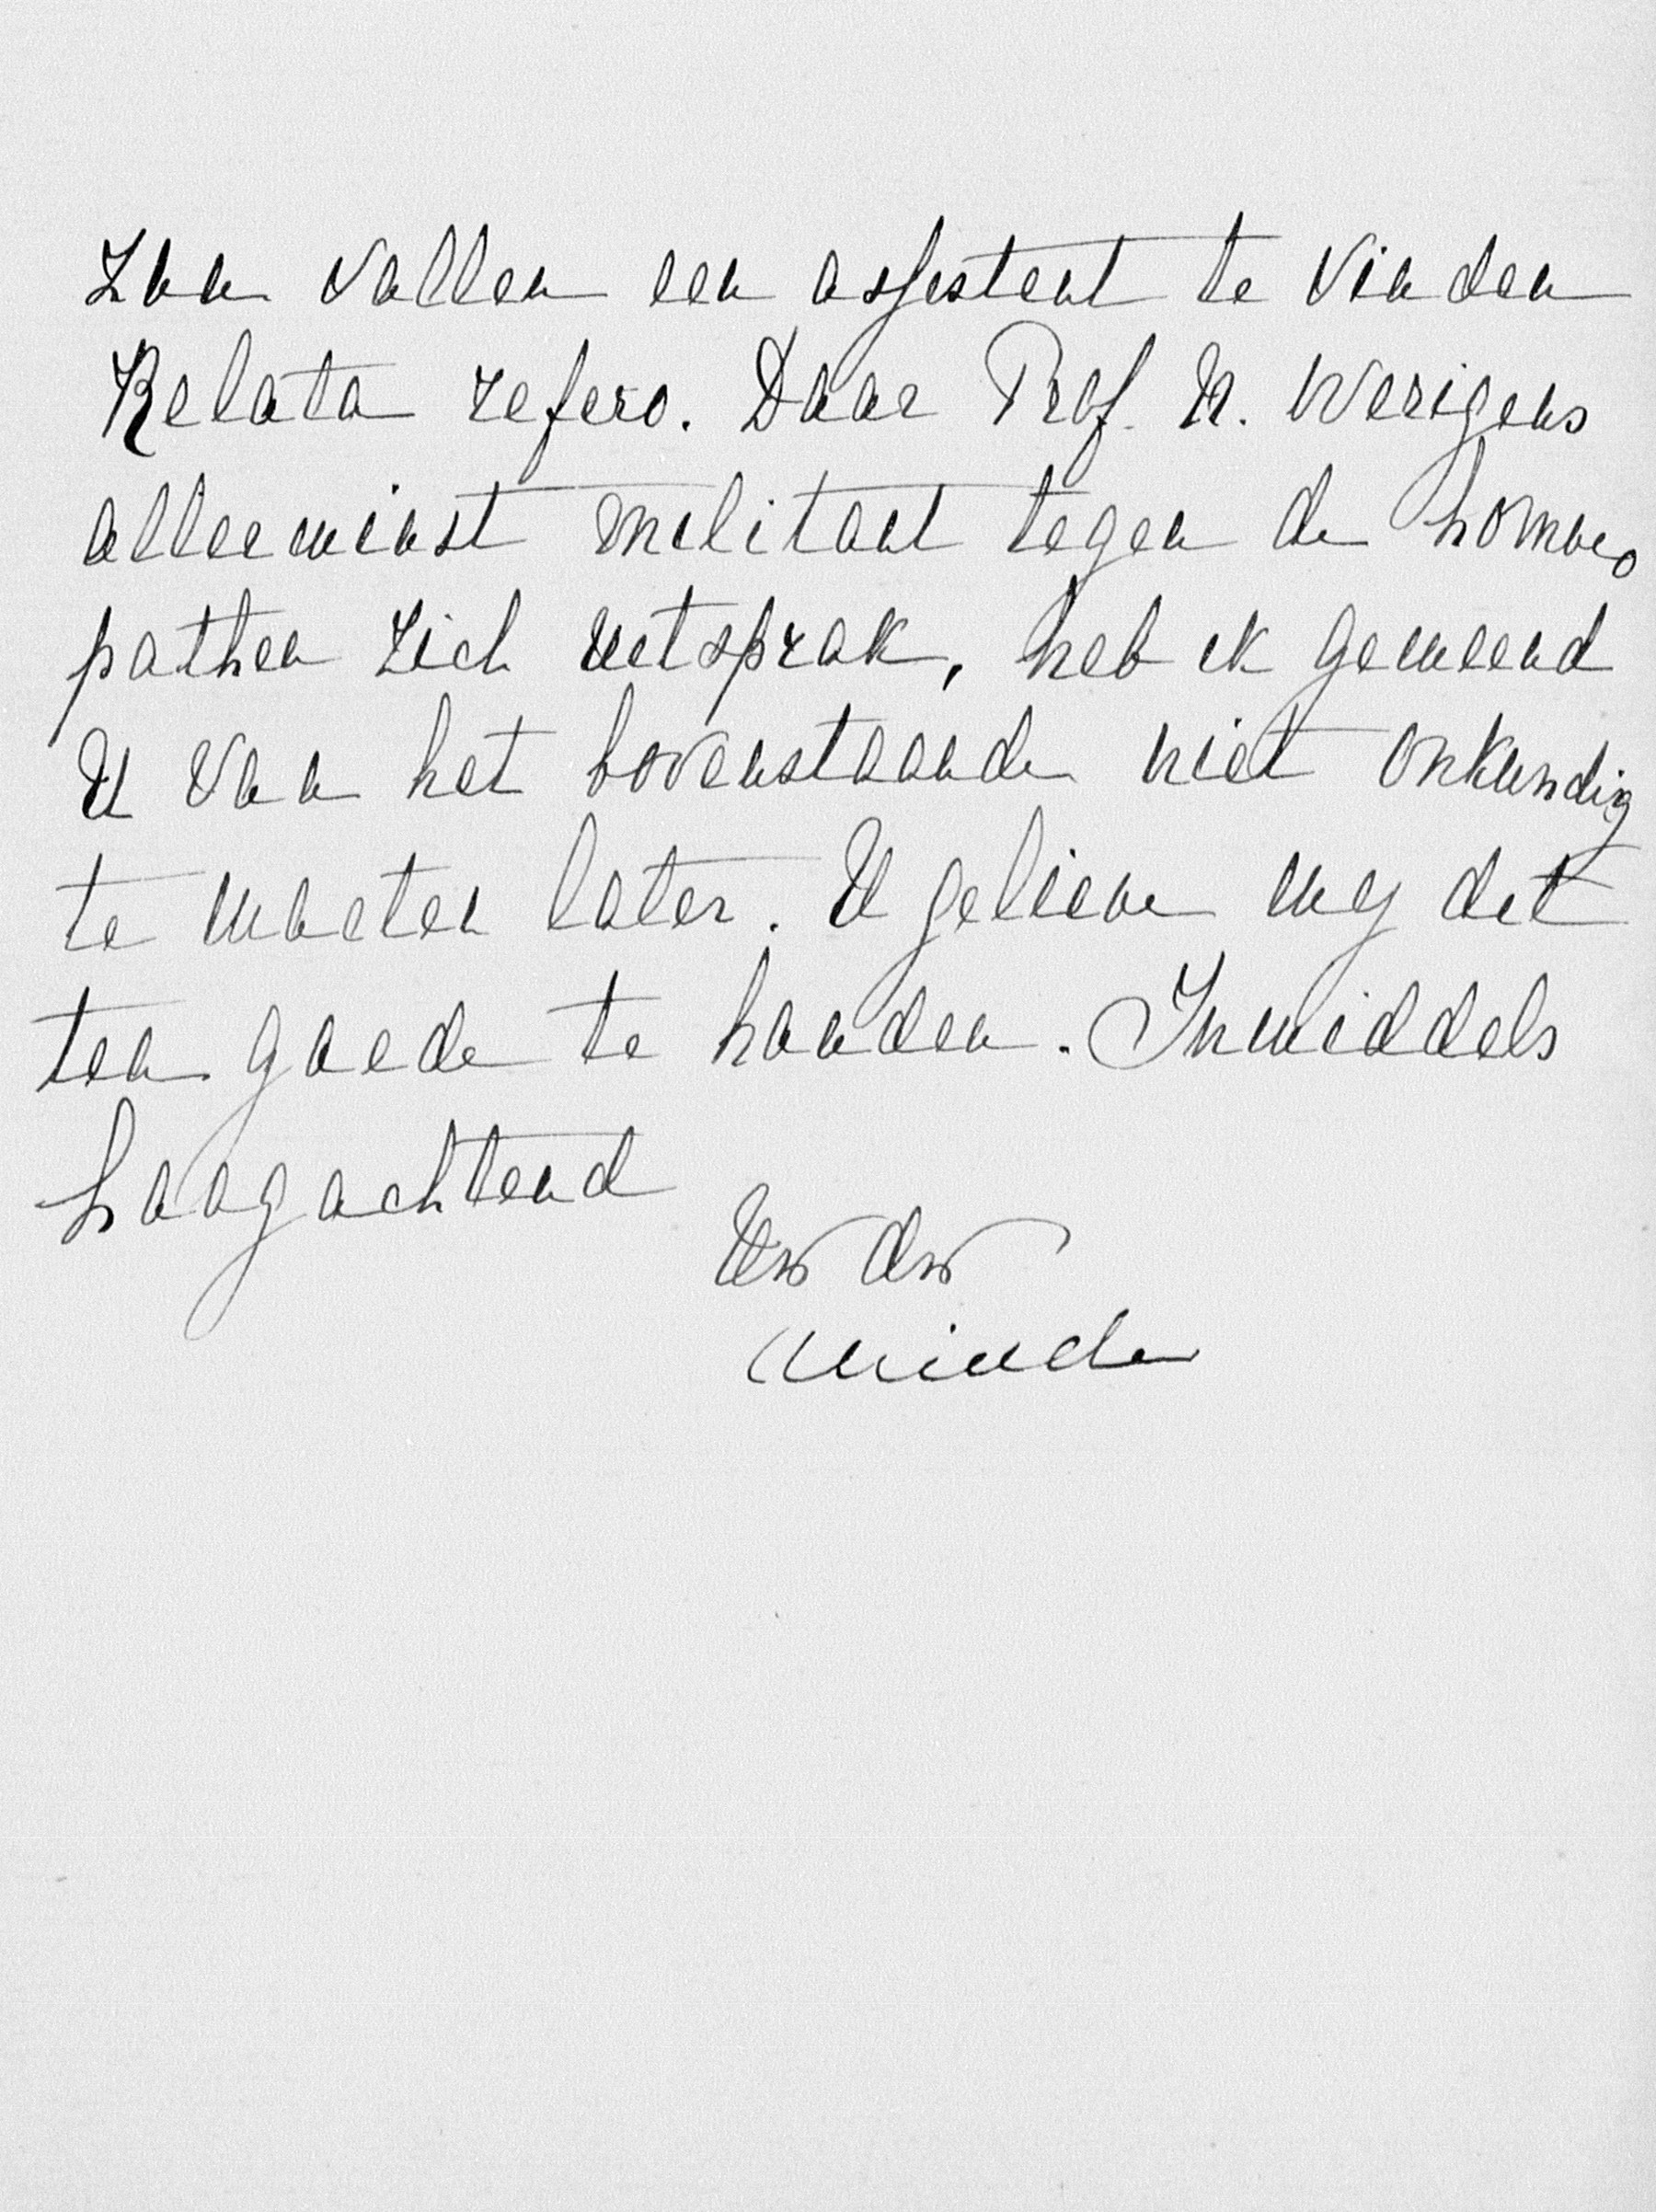 zou vallen een assistent te vinden
Relata refero. Daar Prof. N. overigens
allerminst militant tegen de homoeo
pathen zich uitsprak, heb ik gemeend
U van het bovenstaande niet onkundig
te moeten laten. U gelieve my dit
ten goede te houden. Inmiddels
hoogachtend
Uw dw